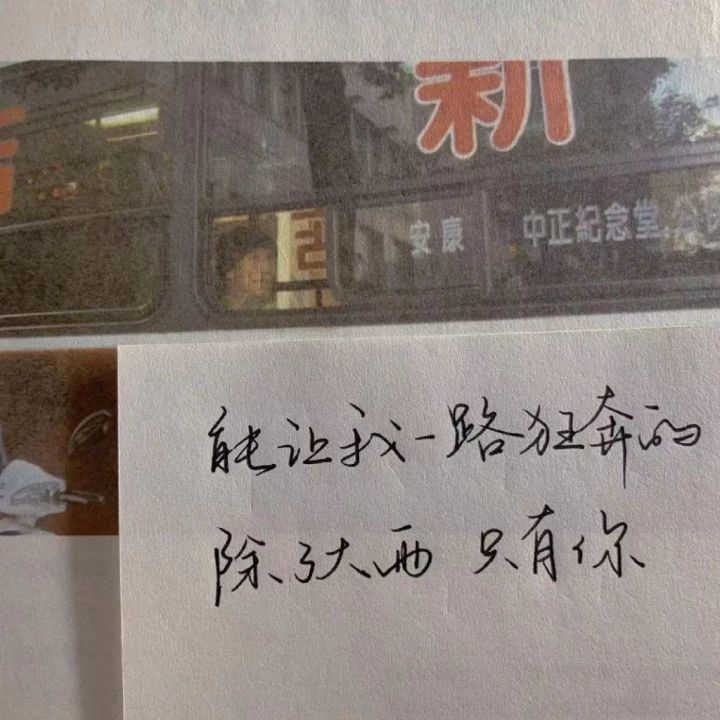 新
安康 中正紀念堂
能让我一路狂奔的
除了大雨 只有你